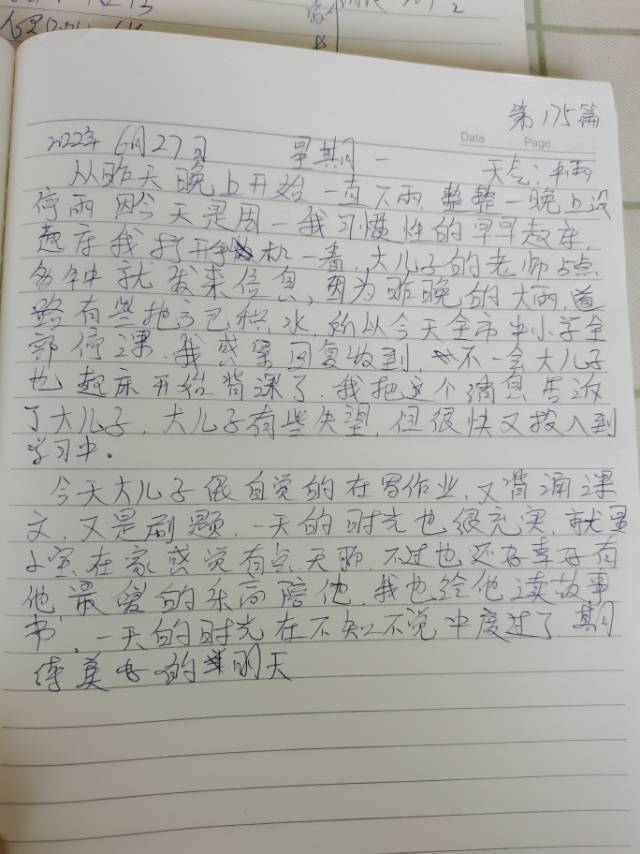 第175篇
Date Page
2022年6月27号 星期一
天气:中雨
从昨天晚上开始一直下雨,整整一晚上没
停雨因今天是周一我习惯性的早早起床,
起床我打开手机一看,大儿子的老师5点
多钟就发来信息,因为昨晚的大雨,道
路有些地方已积水,所以今天全市中小学全
部停课,我感紧回复收到,不一会大儿子
也起床开始背课了,我把这个消息告诉
了大儿子,大儿子有些失望,但很快又投入到
学习中。
今天大儿子很自觉的在写作业,又背诵课
文,又是刷题,一天的时光也很充实,就是
小宝在家感觉有点无聊,不过也还好幸好有
他最爱的乐高陪他,我也给他读故事
书,一天的时光在不知不觉中度过了,期
待美好的明天